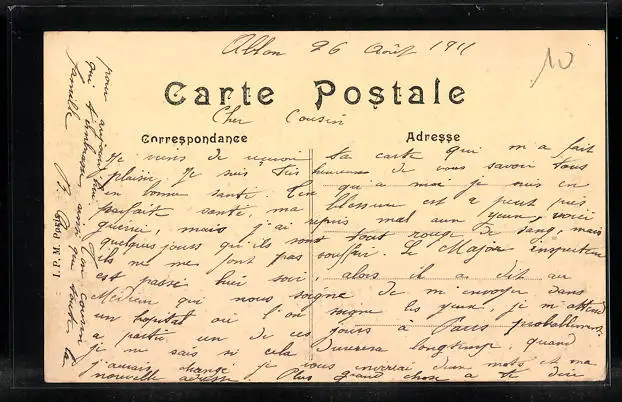 Ablon 26 Août 1911
10
Carte Postale
Cher Cousin
Correspondance
Adresse
Je viens de recevoir ta carte qui m'a fait
plaisir, Je suis très heureux de vous savoir tous
en bonne santé. Quant qui a moi je suis en
parfait santé, ma blessure est a peut près
guerri, mais j'ai repris mal aux yeux, voici
quelques jours qu'ils sont tout rouge de sang, mais
ils ne me font pas souffrir. Le Major inspecteur
est passé hier soir, alors il a dit au
Médecin qui nous soigne de m'envoyer dans
un hopital où l'on soigne les yeux, je m'attend
a partir un de ces jours a Paris probablement.
je ne sais si cela durera longtemp, quand
j'aurais changé je vous enverrai d'un mots et ma
nouvelle adresse. Plus grand chose a te dire
pour aujourd'hui Ton cousin
qui t'embrasse ainsi que toute la
famille
I. P. M. Paris